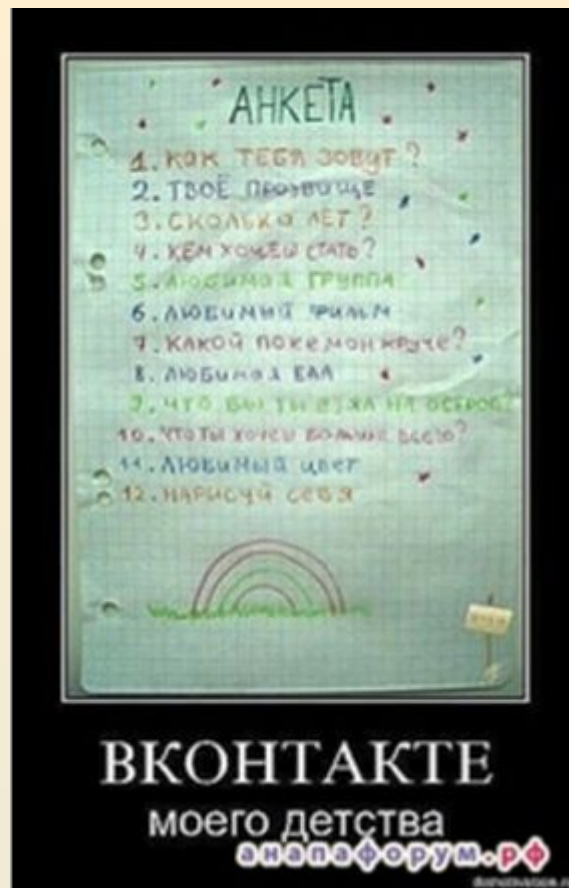 АНКЕТА
1. КАК ТЕБЯ ЗОВУТ?
2. ТВОЁ ПРОЗВИЩЕ
3. СКОЛЬКО ЛЕТ?
4. КЕМ ХОЧЕШ СТАТЬ?
5. ЛЮБИМАЯ ГРУППА
6. ЛЮБИМЫЙ ФИЛЬМ
7. КАКОЙ ПОКЕМОН КРУЧЕ?
8. ЛЮБИМАЯ ЕДА
9. ЧТО БЫ ТЫ ВЗЯЛ НА ОСТРОВ?
10. ЧТО ТЫ ХОЧЕШ БОЛЬШЕ ВСЕГО?
11. ЛЮБИМЫЙ ЦВЕТ
12. НАРИСУЙ СЕБЯ
ВКОНТАКТЕ
моего детства
анапафорум.рф